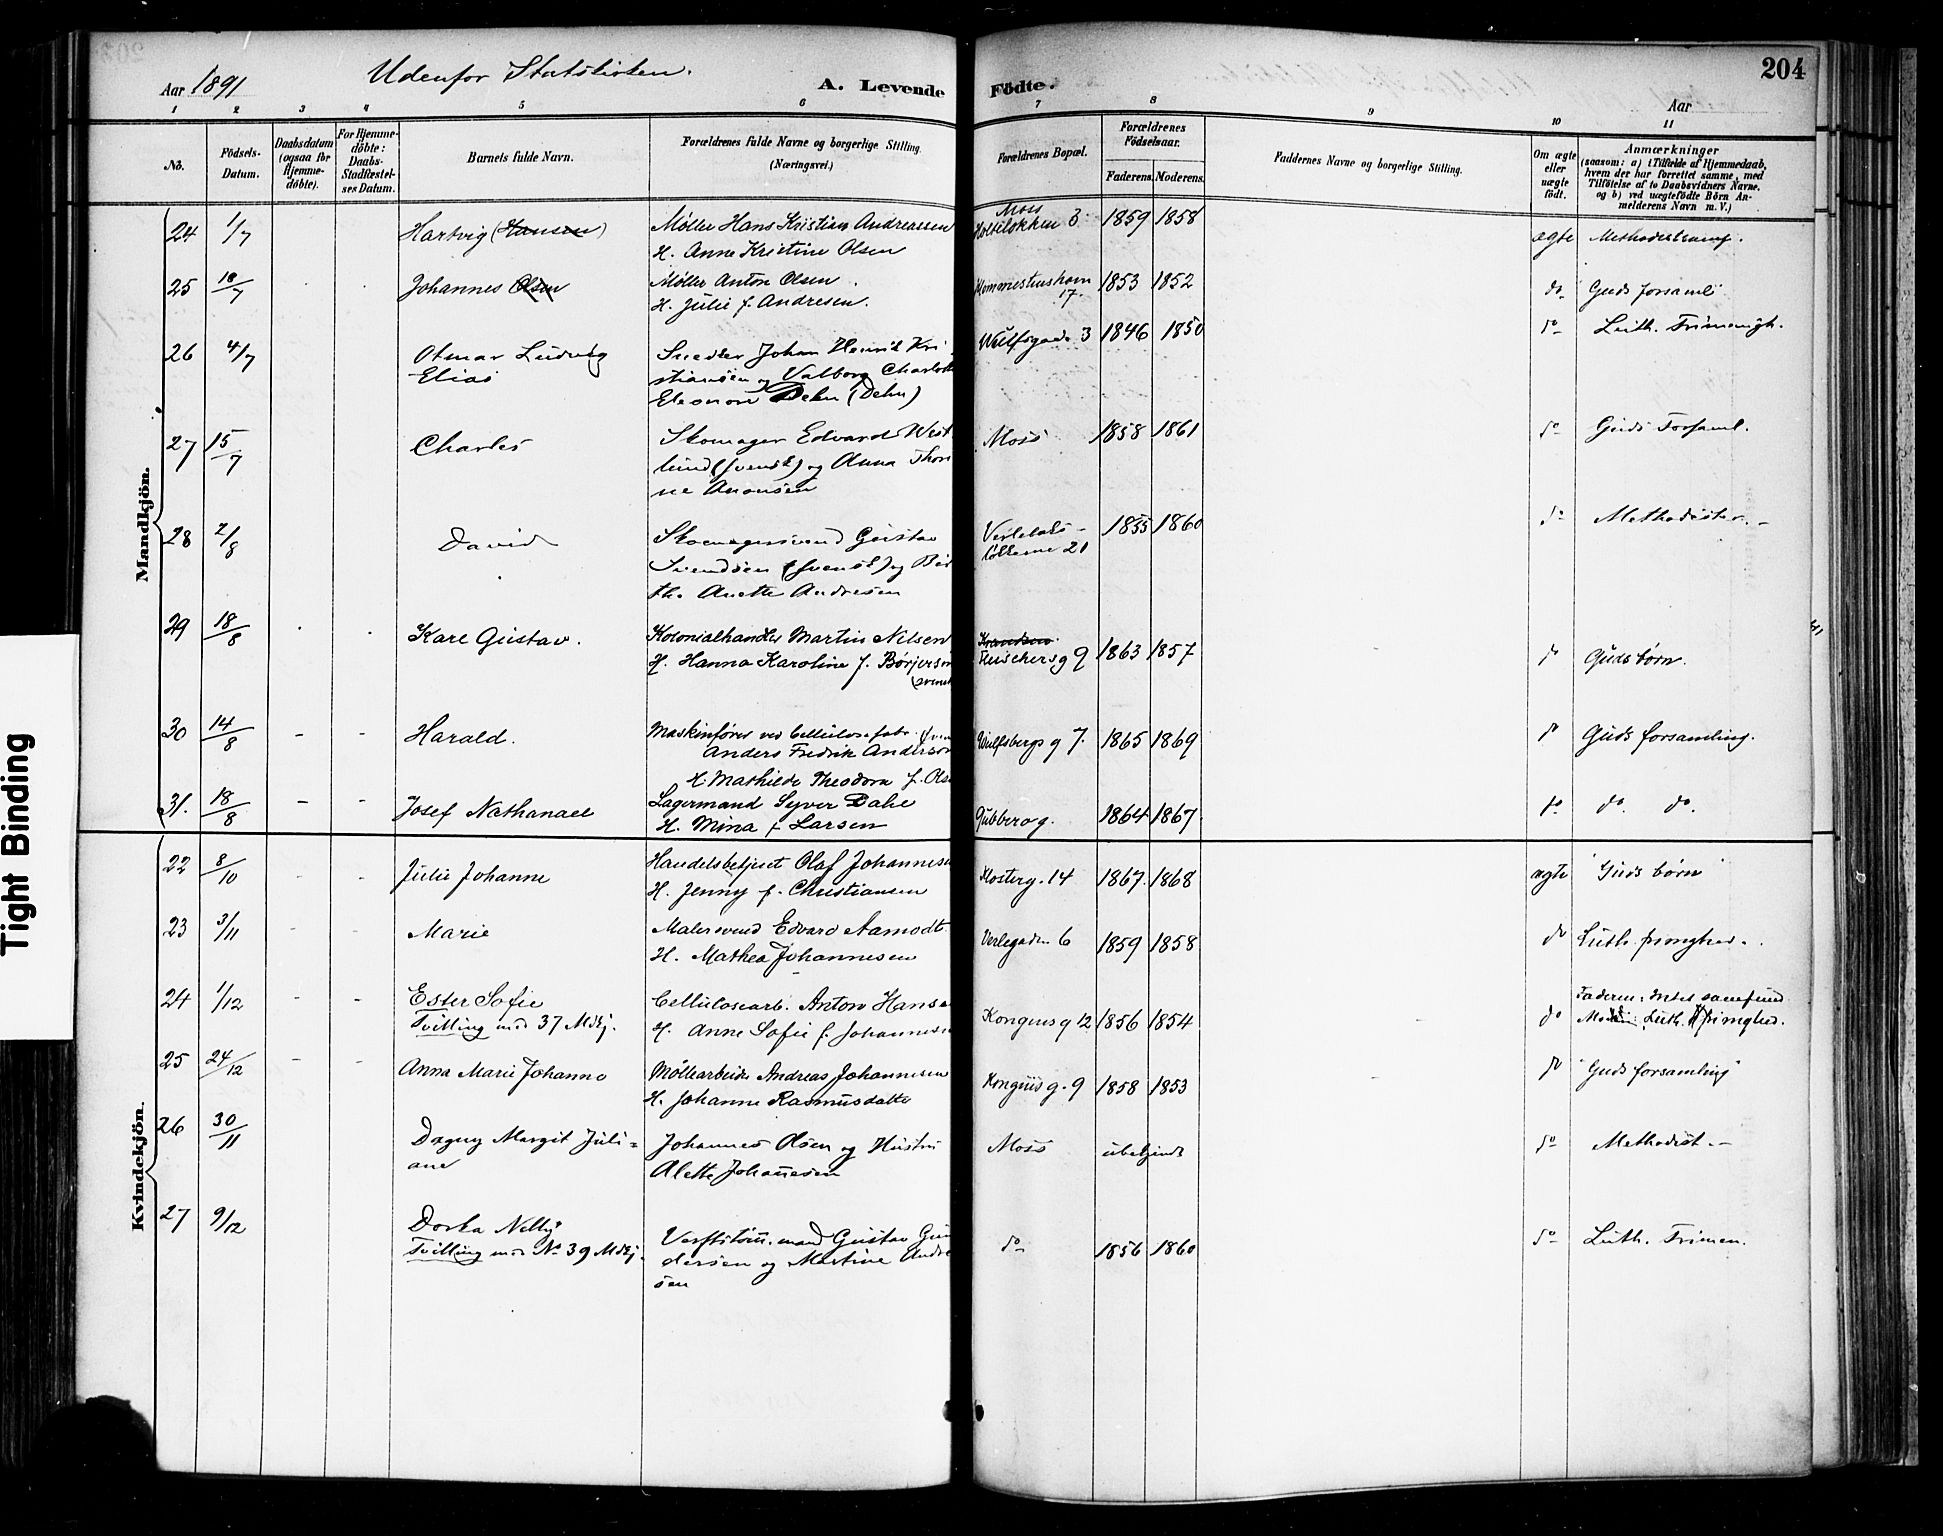 Aar 1891 Udenfor Statskirken. A. Levende Födte. 204
Aar
1 2 3 4 5 6 7 8 9 10 11
No. Födsels-Datum. Daabsdatum (ogsaa for Hjemmedöbte). For Hjemmedöbte: Daabs-Stadfæstelses Datum. Barnets fulde Navn. Forældrenes fulde Navne og borgerlige Stilling. (Næringsvei.) Forældrenes Bopæl. Forældrenes Födselsaar. Faderens. Moderens. Faddernes Navne og borgerlige Stilling. Om ægte eller uægte født. Anmærkninger (saasom: a) i Tilfælde af Hjemmedaab, hvem der har forrettet samme, med Tilföielse af to Daabsvidners Navne, og b) ved uægtefödte Börn Anmelderens Navn m. V.)
Mandkjön.
24 1/7 Hartvig (Hansen) Møller Hans Kristian Andreassen Moss 1859 1858 ægte
H. Anne Kristine Olsen
25 18/7 Johannes Olsen Møller Anton Olsen 17. 1853 1852 do Guds forsaml
H. Julie f. Andresen.
26 4/7 Otmar Ludvig Snedker Johan Henrik Kri- 3 1846 1850 do Luth. Frimenigh.
Elias stiansen og Valborg Charlott
Eleonore Dehn (Dehn)
27 15/7 Charles Skomager Edvard West- Moss 1858 1861 do Guds Forsaml.
lund (svensk) og Anna Thori
ne Aronsen
28 2/8 David Skomagersvend Gustav 1855 1860 do Methodister.
Svendsen (svensk) og Ber
the Anette Andresen løkkerne 21
29 18/8 Kare Gustav. Kolonialhandler Martin Nilsen 9 1863 1857 do Guds børn.
H. Hanna Karoline f. Børjerson
30 14/8 Harald. Maskinfører ved Cellulosefabr. Wulfsbergs g 7. 1865 1869 do Guds forsamling.
Anders Fredrik Anderson
H. Mathilde Theodora f. Ols
31. 18/8 Josef Nathanael Lagermand Syver Dahl Gubberog. 1864 1867 do do do.
H. Mina f. Larsen
Kvindekjön.
22 8/10 Julie Johanne Handelsbetjent Olaf Johannesen Klosterg. 14 1867 1868 ægte "Guds børn"
H. Jenny f. Christiansen
23 3/11 Marie Malersvend Edvard Aamodt Verlegaden 6 1859 1858 do Luth. frimghed.
H. Mathea Johannesen
24 1/12 Ester Sofie Cellulosearb. Anton Hanse Kongens g 12 1856 1854 do Faderen: Intet samfund
Tvilling med 37 Mdkj. H. Anne Sofie f. Johannesen Luth. frimghed.
25 24/12 Anna Marie Johanne Møllearbeider Andreas Johannesen Kongens g. 9 1858 1853 do "Guds forsamling"
H. Johanne Rasmusdatter
26 30/11 Dagny Margit Juli= Johannes Olsen og Hustru Moss ubekjendt do Methodist.
ane Alette Johannesen
27 9/12 Dorka Nelly Gustav Gun do 1856 1860 do Luth. Frimen.
Tvilling med No 39 Mdkj. dersen og Martine Andre
sen
Tight Binding